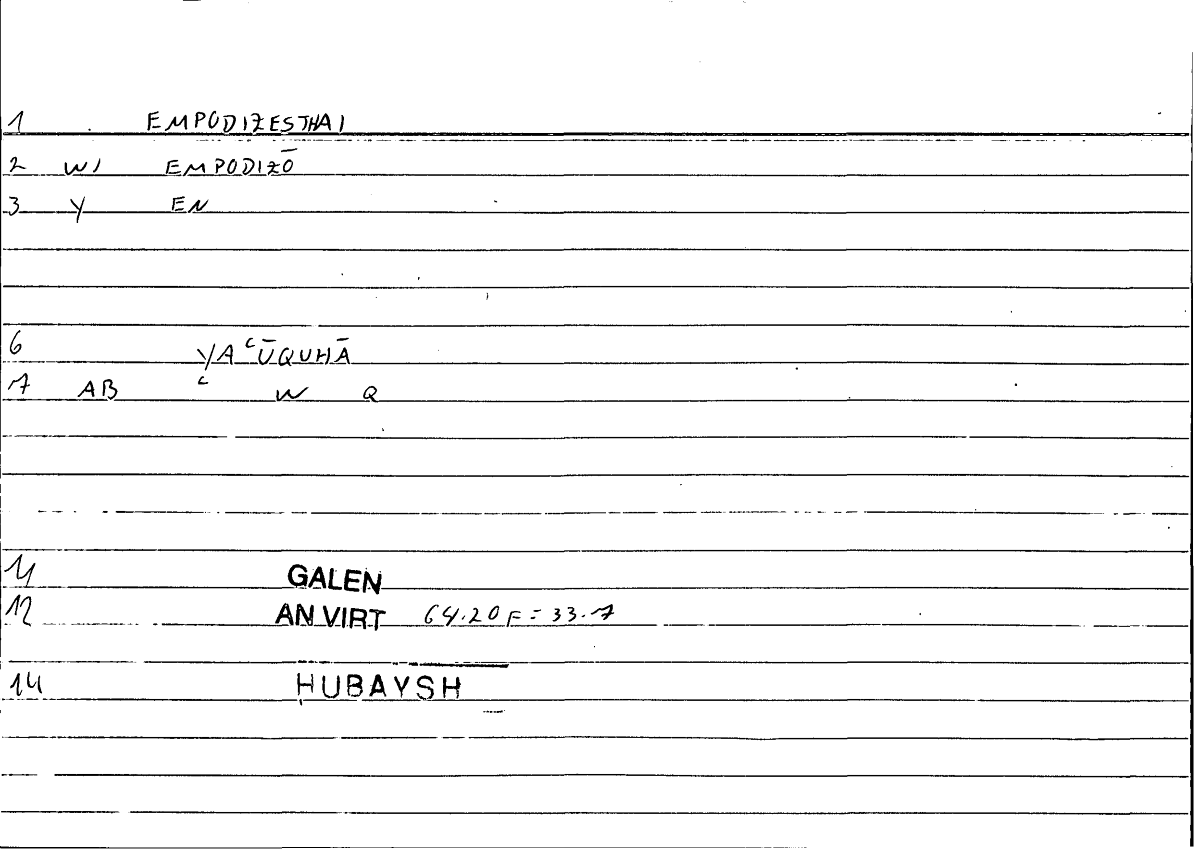 1 EMPODIZESTHAI
2 WI EMPODIZŌ
3 Y EN
6 YAʿŪQUHĀ
7 AB ʿ W Q
11 GALEN
12 AN VIRT 64.20 F = 33.7
14 ḤUBAYSH